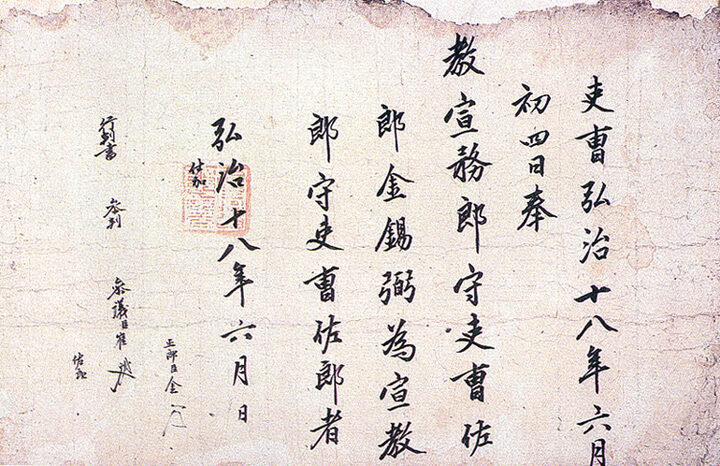 吏曹弘治十八年六月
初四日奉
教宣務郎守吏曹佐
郎金錫弼為宣教
郎守吏曹佐郎者
弘治十八年六月 日
行判書
參判
參議臣崔
正郎臣金
佐郎